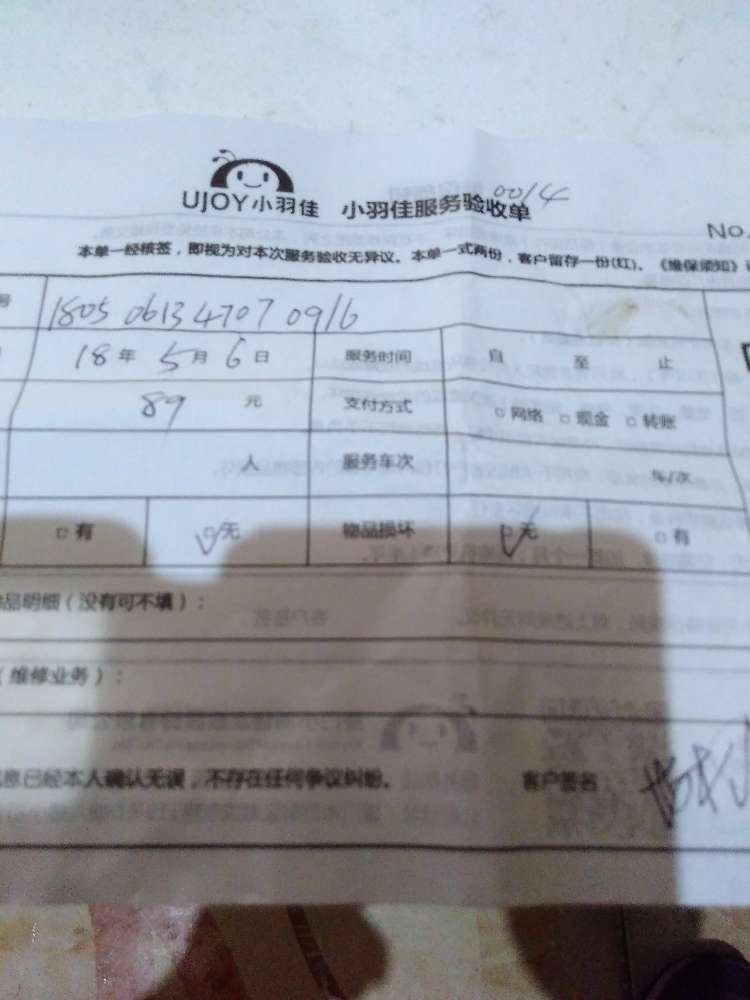 0014
UJOY小羽佳 小羽佳服务验收单
No.
本单一经核签，即视为对本次服务验收无异议。本单一式两份，客户留存一份(红)。《维保须知》
号 1805 0613 4707 0916
18年 5月 6日 服务时间 自 至 止
89 元 支付方式 □网络 □现金 □转账
人 服务车次 车/次
□有 □无 物品损坏 □无 □有
品明细（没有可不填）：
（维修业务）：
息已经本人确认无误，不存在任何争议纠纷。 客户签名